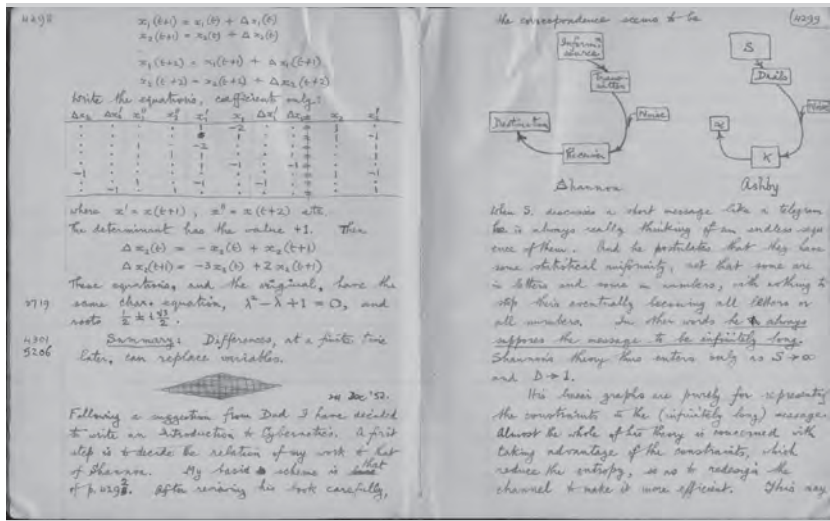 4298
x₁(t+1) = x₁(t) + Δx₁(t)
x₂(t+1) = x₂(t) + Δx₂(t)
x₁(t+2) = x₁(t+1) + Δx₁(t+1)
x₂(t+2) = x₂(t+2) + Δx₂(t+2)
Write the equations, coefficient only:
where x' = x(t+1), x" = x(t+2) etc.
The determinant has the value +1. Then
Δx₂(t) = -x₂(t) + x₂(t+1)
Δx₂(t+1) = -3x₂(t) + 2x₂(t+1)
These equations, and the original, have the
3719 same char. equation, λ² - λ + 1 = 0, and
roots 1/2 ± i √3/2.
4301 Summary: Differences, at a finite time
5206 later, can replace variables.
Dec '52.
Following a suggestion from Dad I have decided
to write an Introduction to Cybernetics. A first
step is to decide the relation of my work to that
of Shannon. My basic scheme is that
of p. After reviewing his book carefully,
the correspondence seems to be 4299
Inform.
source
Trans-
mitter
Noise
Receiver
Destination
Shannon
S
Noise
K
Ashby
When S. discusses a short message like a telegram
he is always really thinking of an endless sequ
ence of them. And he postulates that they have
some statistical uniformity, not that some are
in letters and some in numbers, with nothing to
stop this eventually becoming all letters or
all numbers. In other words he always
supposes the message to be infinitely long.
Shannon's theory thus enters only as S → ∞
and D → 1.
His basic graphs are purely for representing
the constraints to the (infinitely long) message.
Almost the whole of his theory is concerned with
taking advantage of the constraints, which
reduce the entropy, so as to redesign the
channel to make it more efficient. This may